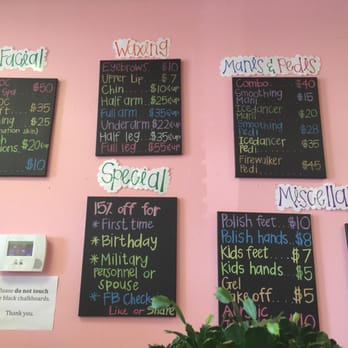 Facial
$50
Spa
$35
$25
(nation skin)
$20&up
$10
Waxing
Eyebrows....$10
Upper Lip....$7
Chin....$10&up
Half arm...$25&up
Full arm...$35&up
Underarm $22&up
Half leg...$35&up
Full leg...$55&up
Manis & Pedis
Combo.......$40
Smoothing $15
Mani
Icedancer
Mani $20
Smoothing
Pedi $28
Icedancer $35
Pedi
Firewalker
Pedi $45
Special
15% off for
* First time
* Birthday
* Military
personnel or
spouse
* FB Check in
Like or Share
Miscella
Polish feet...$10
Polish hands..$8
Kids feet....$7
Kids hands...$5
Gel
Take off....$5
Please do not touch
black chalkboards.
Thank you.